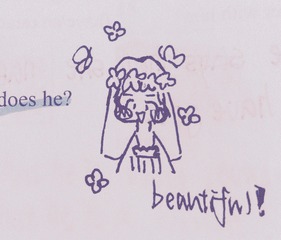 does he?
beautiful!